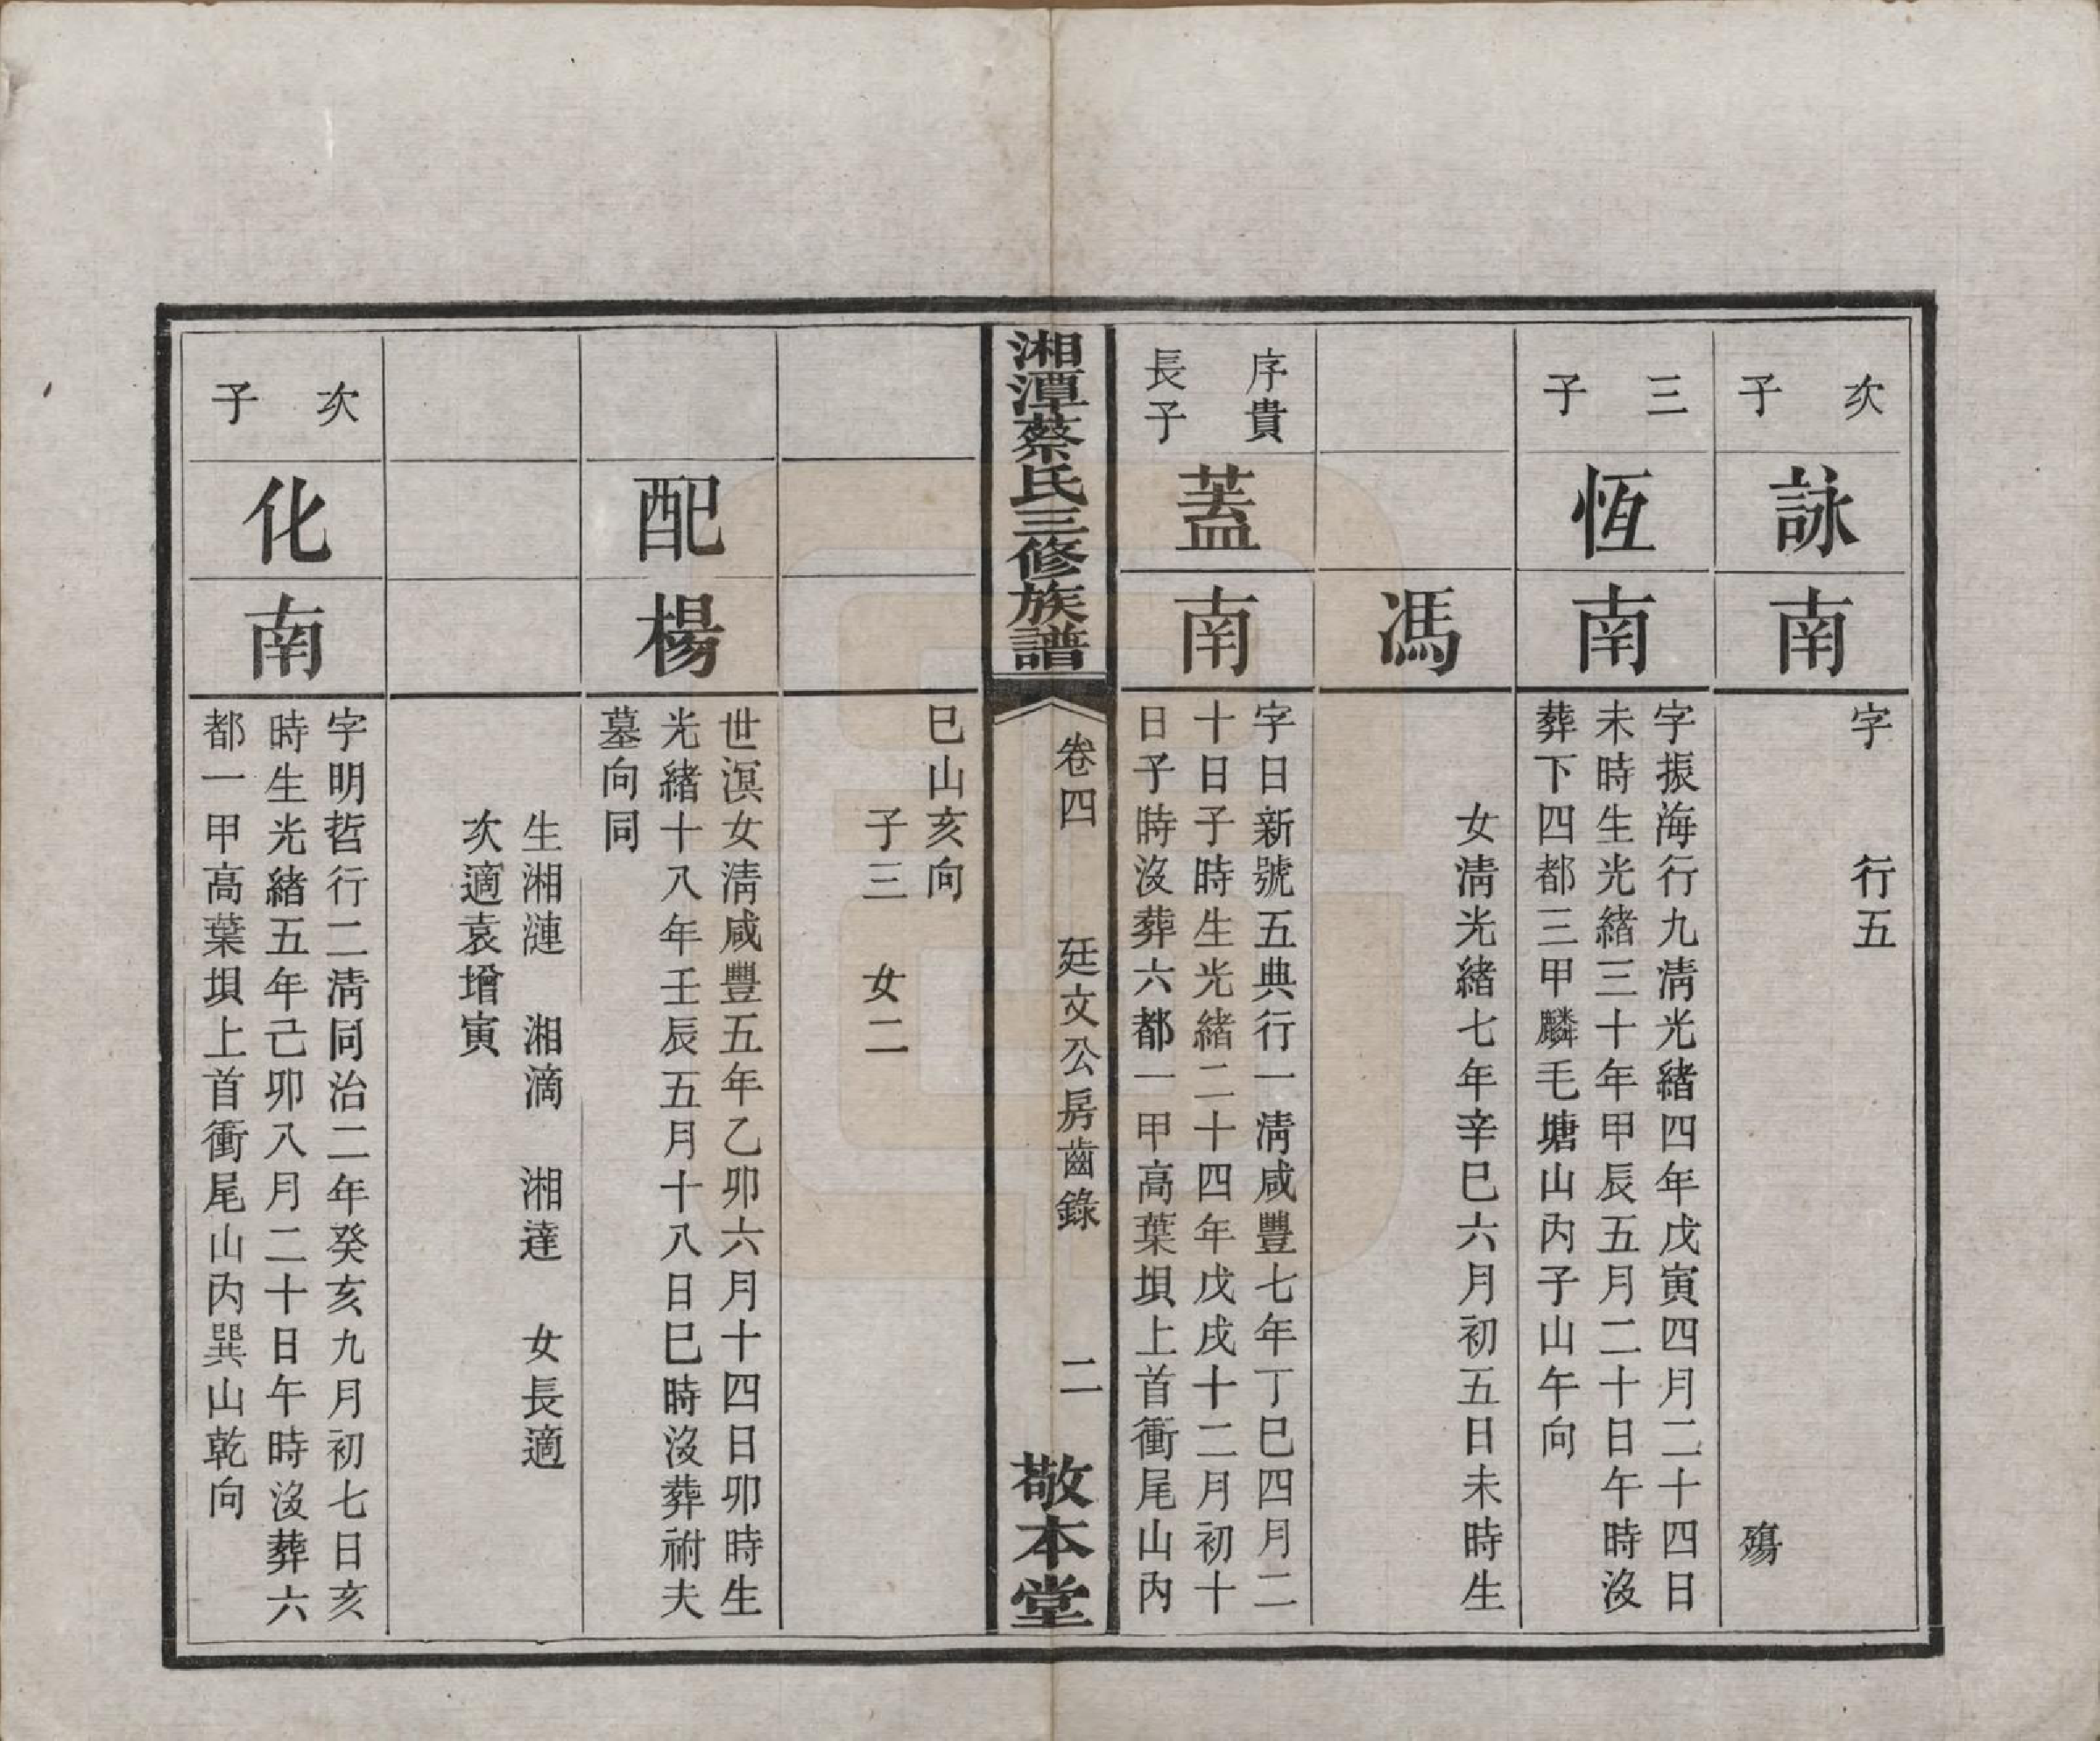 次子
詠南
字　　行五
殤
三子
恆南
字振海行九淸光緒四年戊寅四月二十四日
未時生光緒三十年甲辰五月二十日午時沒
葬下四都三甲麟毛塘山內子山午向
馮
女淸光緒七年辛巳六月初五日未時生
序貴
長子
蓋南
字日新號五典行一淸咸豐七年丁巳四月二
十日子時生光緒二十四年戊戌十二月初十
日子時沒葬六都一甲高葉垻上首衝尾山內
湘潭蔡氏三修族譜
卷四　　廷文公房齒錄　　二
敬本堂
巳山亥向
子三　女二
配楊
世溟女淸咸豐五年乙卯六月十四日卯時生
光緒十八年壬辰五月十八日巳時沒葬祔夫
墓向同
生湘漣　湘滴　湘達　女長適
次適袁增寅
次子
化南
字明哲行二淸同治二年癸亥九月初七日亥
時生光緒五年己卯八月二十日午時沒葬六
都一甲高葉垻上首衝尾山內巽山乾向